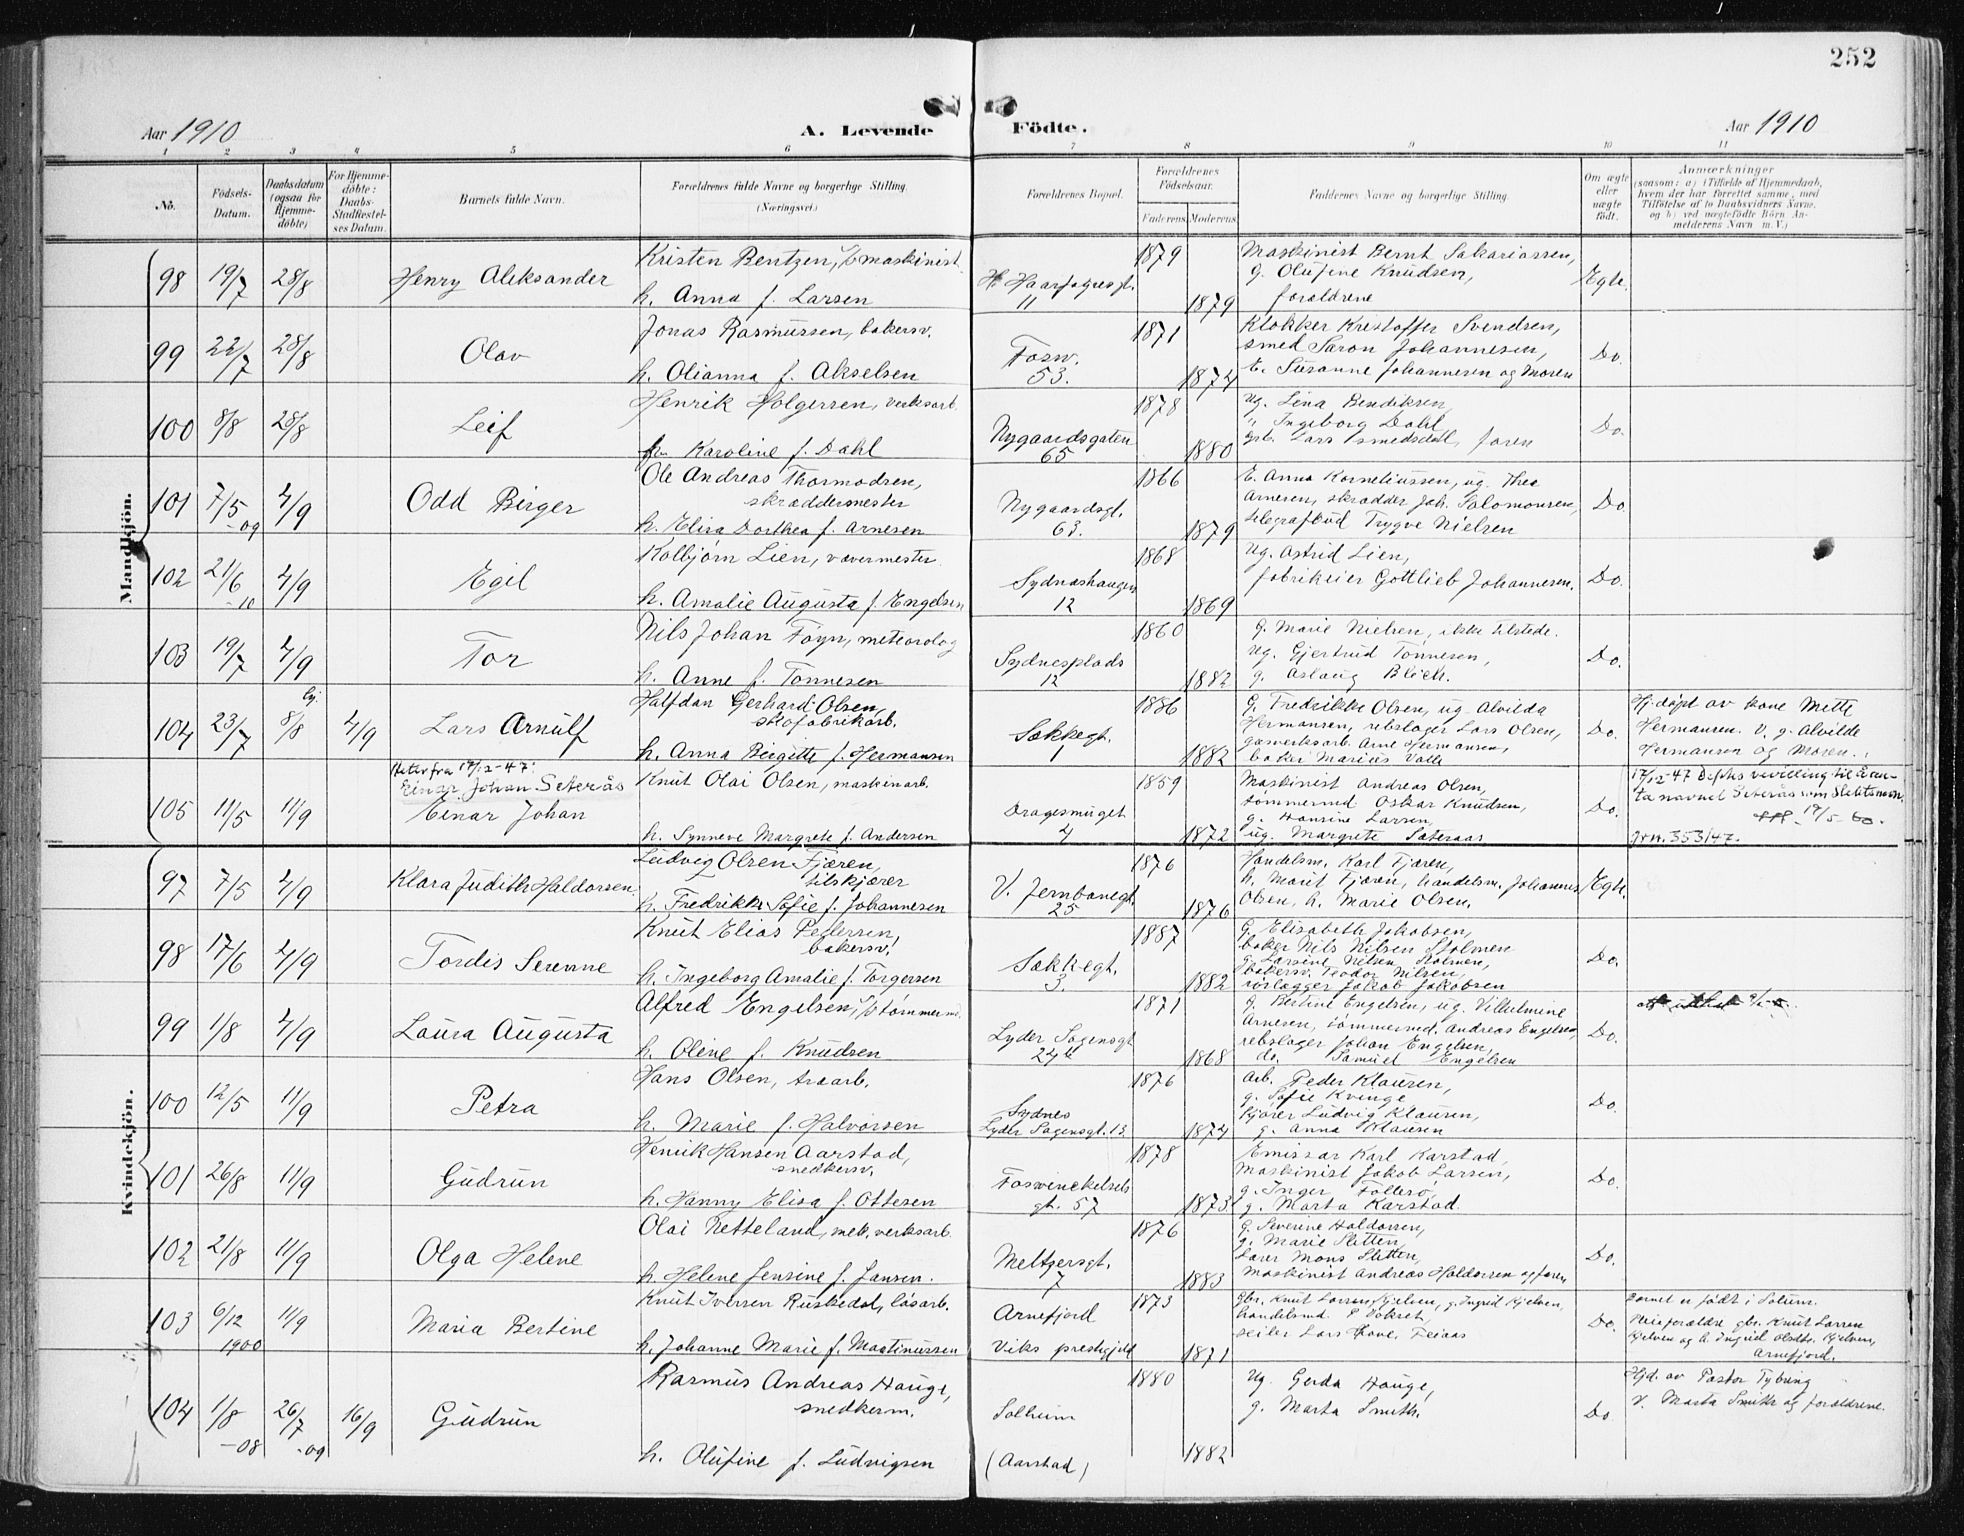 252
Aar 1910
A. Levende Födte.
Aar 1910
1 2 3 4 5 6 7 8 9 10 11
No.
Födsels-Datum.
Daabsdatum (ogsaa for Hjemme-döbte)
For Hjemme-döbte: Daabs-Stadfæstel-ses Datum.
Barnets fulde Navn.
Forældrenes fulde Navne og borgerlige Stilling.
(Næringsvei.)
Forældrenes Bopæl.
Forældrenes Födselsaar.
Faderens. Moderens.
Faddernes Navne og borgerlige Stilling.
Om ægte eller uægte födt.
Anmærkninger
(saasom: a) i Tilfælde af Hjemmedaab,
hvem der har forrettet samme, med
Tilföielse af to Daabsvidners Navne,
og b) ved uægtefödte Börn An-
melderens Navn m. V.)
Mandkjön.
98 19/7 28/8 Henry Aleksander
Kristen Bentzen, maskinist
h. Anna f. Larsen
H. Haarfagresgt. 11
1879 1879
Maskinist Bernt Sakariassen,
g. Olufine Knudsen,
foraldrene
Egte.
99 22/7 28/8 Olav
Jonas Rasmussen, bakersv.
h. Olianna f. Akselsen
Fosw. 53.
1871 1874
Klokker Kristoffer Svendsen,
smed Saron Johannesen,
E. Susanne Johannesen og Moren
Do.
100 8/8 28/8 Leif
Henrik Holgersen, verksarb.
h. Karoline f. Dahl
Nygaardsgaten 65
1878 1880
Ug. Lina Bendiksen
" Ingeborg Dahl,
gbr. Lars Smedsdal, faren
Do.
101 7/5 -09 4/9 Odd Birger
Ole Andreas Thormodsen,
skræddermester
h. Elisa Dorthea f. Arnesen
Nygaardsgt. 63.
1866 1879
E. Anna Korneliussen, ug. Thea
Arnesen, skrædder Joh. Salomonsen,
telegrafbud Trygve Nielsen
Do
102 21/6 -10 4/9 Egil
Kolbjørn Lien, vævermester
h. Amalie Augusta f. Engelsen
Sydneshaugen 12
1868 1869
Ug. Astrid Lien,
fabrikeier Gottlieb Johannesen.
Do.
103 19/7 4/9 Tor
Nils Johan Føyn, meteorolog
h. Anne f. Tønnesen
Sydnesplads 12
1860 1882
G. Marie Nielsen, ikke tilstede.
Ug. Gjertrud Tønnesen,
g. Aslaug Blich.
Do.
104 23/7 8/8 4/9 Lars Arnulf
Halfdan Gerhard Olsen,
skofabrikarb.
h. Anna Birgitte f. Hermansen
Sækkegt. 1
1886 1882
G. Fredrikke Olsen, ug Alvilda
Hermansen, rebslager Lars Olsen,
gasverksarb. Arne Hermansen,
baker Marius Valle
Do.
Hj. døpt av kone Mette
Hermansen. V. g. Alvilde
Hermansen og Moren.
105 11/5 11/9
Heter fra 17/12-47:
Einar Johan Seterås
Einar Johan
Knut Olai Olsen, maskinarb.
h. Synneve Margrete f. Andersen
Dragesmuget 4
1859 1872
Maskinist Andreas Olsen,
tømmermd Oskar Knudsen,
g. Hansine Larsen,
ug. Margrete Sæteraas
Do.
17/12-47 Dept.s bevilling til å an-
ta navnet Seterås som slektsnavn.
Jrn. 353/47.
Kvindekjön.
97 7/5 4/9 Klara Judith Haldorsen
Ludvig Olsen Fjæren,
h. Fredrikke Sofie f. Johannesen
V. Jernbanegt. 25
1876 1876
Handelsm. Karl Fjæren,
h. Marit Fjæren, handelsm. Johannes
Olsen, h. Marie Olsen.
Egte.
98 17/6 4/9 Tordis Serenne
Knut Elias Pedersen,
bakersv.
h. Ingeborg Amalie f. Torgersen
Sækkegt. 3.
1887 1882
G. Elisabeth Jakobsen,
baker Nils Nilsen Stolmen
g. Larsine Nilsen Stolmen,
bakersv. Teodor Nilsen,
rørlægger Jakob Jakobsen
Do.
99 1/8 4/9 Laura Augusta
Alfred Engelsen, tømmermd
h. Oline f. Knudsen
Lyder Sagensgt 24b
1871 1868
g. Bertine Engelsen, ug. Vilhelmine
Arnesen, tømmermd. Andreas Engelsen,
rebslager Johan Engelsen,
do. Samuel Engelsen
Do.
100 12/5 11/9 Petra
Hans Olsen, træarb.
h. Marie f. Halvorsen
Sydnes
Lyder Sagensgt. 13
1876 1874
Arb. Peder Klausen,
g. Sofie Kvinge
Kjører Ludvig Klausen,
g. Anna Klausen
Do.
101 26/8 11/9 Gudrun
Henrik Hansen Aarstad,
snedkersv.
h. Hanny Elisa f. Ottesen
Foswinckelsels gt. 57
1878 1873
Emissær Karl Karstad,
Maskinist Jakob Larsen,
g. Inger Follesø,
g. Marta Karstad.
Do.
102 21/8 11/9 Olga Helene
Olai Netteland, mek. verksarb.
h. Helene Jensine f. Jansen.
Meltzersgt. 7
1876 1883
G. Severine Haldorsen,
g. Marie Sletten,
Lærer Mons Sletten,
Maskinist Andreas Haldorsen og faren
Do.
103 6/12 1900 11/9 Maria Bertine
Knut Iversen Ruskedal, løsarb.
h. Johanne Marie f. Martinussen
Arnefjord
Viks prestegjeld
1873 1871
Gbr. Knut Larsen Kjelven, g. Ingrid Kjelven,
handelsmd P Hokset,
seiler Lars
Do.
Barnet er født i Solum.
Pleieforældre gbr. Knut Larsen
Kjelven og h. Ingrid Olsdtr. Kjelven,
Arnefjord.
104 1/8 -08 26/7 -09 16/9 Gudrun
Rasmus Andreas Hauge,
snedkerm.
h. Olufine f. Ludvigsen
Solheim
(Aarstad)
1880 1882
Ug. Gerda Hauge,
g. Marta Smith.
Do
Hjd. av Pastor Tybring
V. Marta Smith og forældrene.